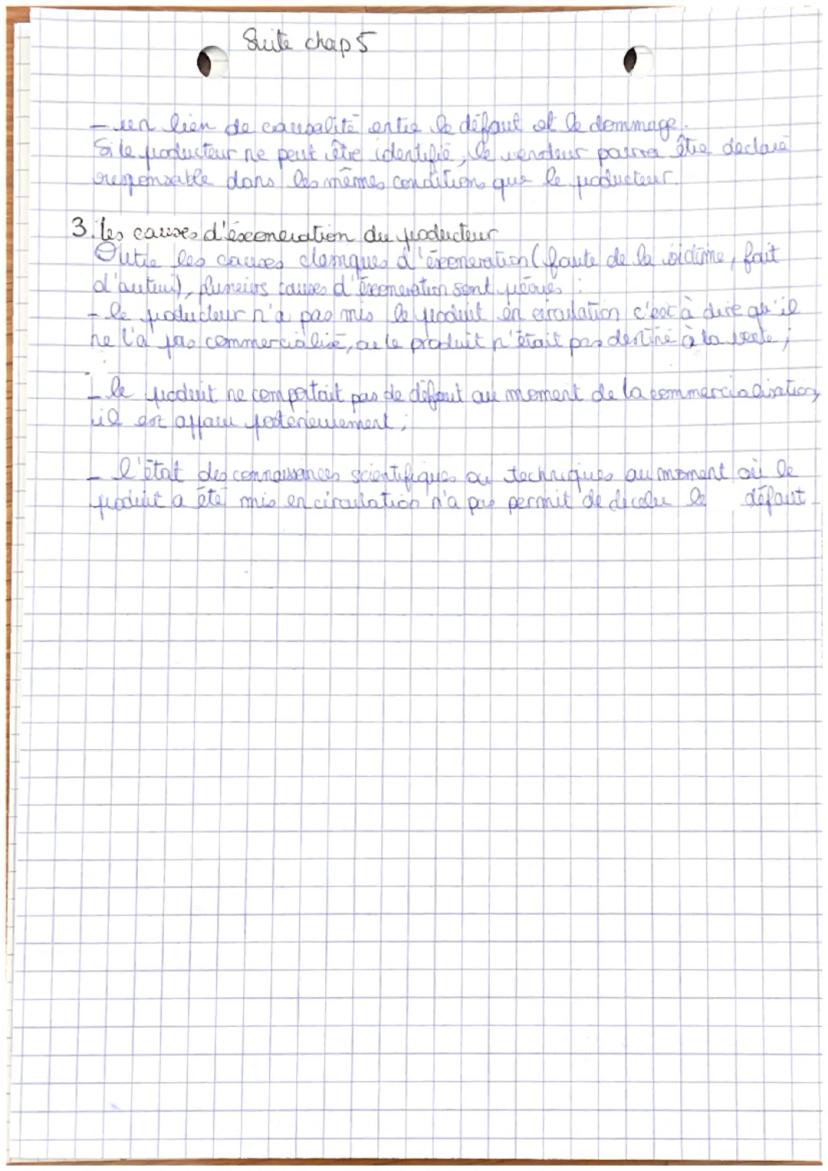 Suite chap 5
- un lien de causalité entre le défaut et le dommage.
Si le producteur ne peut être identifié, le vendeur pourra être déclaré
responsable dans les mêmes conditions que le producteur.
3. Les causes d'éxoneration du producteur
Outre les causes classiques d'éxoneration (faute de la victime, fait
d'autrui), plusieurs causes d'éxoneration sont prévues :
- le producteur n'a pas mis le produit en circulation c'est à dire qu'il
ne l'a pas commercialisé, ou le produit n'était pas destiné à la vente ;
- le produit ne comportait pas de défaut au moment de la commercialisation,
il est apparu postérieurement ;
- l'état des connaissances scientifiques ou techniques au moment où le
produit a été mis en circulation n'a pas permit de déceler le défaut